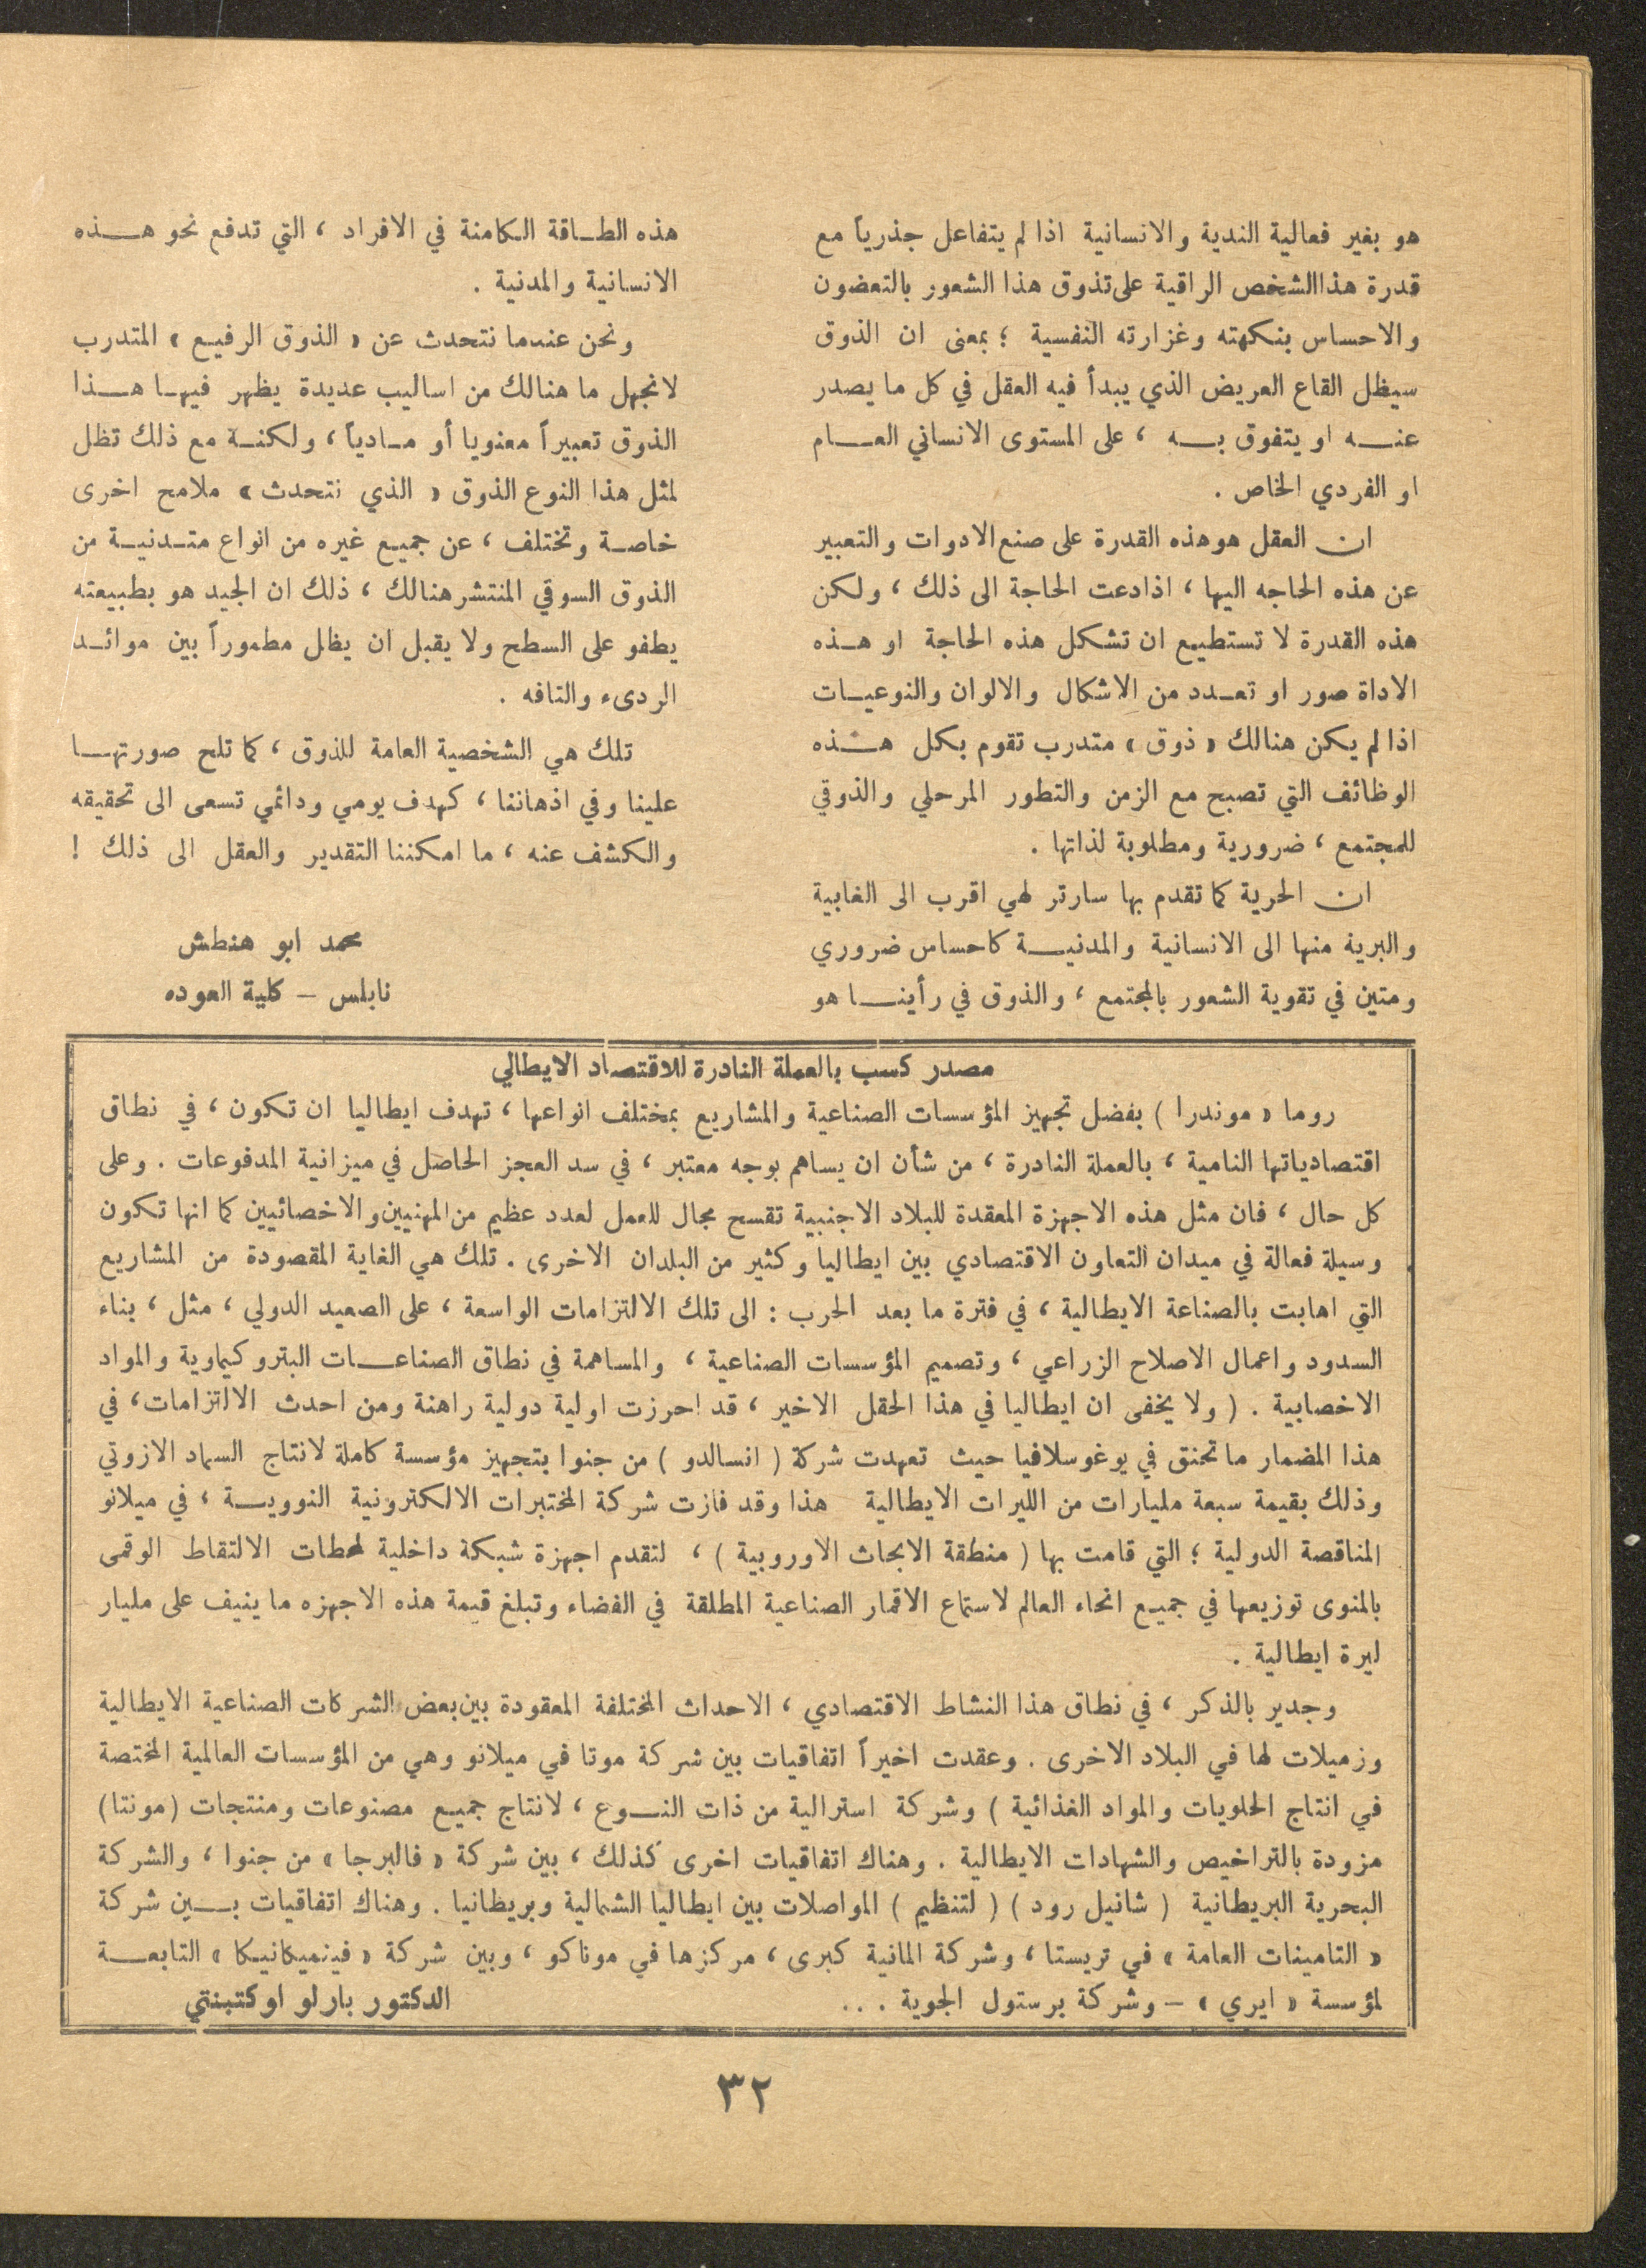 هو بغير فعالية الندية والانسانية اذا لم يتفاعل جذرياً مع
قدرة هذا الشخص الراقية على تذوق هذا الشعور بالتعضون
والاحساس بنكهته وغزارته النفسية ؛ بمعنى ان الذوق
سيظل القاع العريض الذي يبدأ فيه العقل في كل ما يصدر
عنه او يتفوق به ، على المستوى الانساني العام
او الفردي الخاص .
ان العقل هو هذه القدرة على صنع الادوات والتعبير
عن هذه الحاجه اليها ، اذا دعت الحاجة الى ذلك ، ولكن
هذه القدرة لا تستطيع ان تشكل هذه الحاجة او هذه
الاداة صور او تعدد من الاشكال والالوان والنوعيات
اذا لم يكن هنالك « ذوق » متدرب تقوم بكل هذه
الوظائف التي تصبح مع الزمن والتطور المرحلي والذوقي
للمجتمع ، ضرورية ومطلوبة لذاتها .
ان الحرية كما تقدم بها سارتر لهي اقرب الى الغابية
والبرية منها الى الانسانية والمدنية كاحساس ضروري
ومتين في تقوية الشعور بالمجتمع ، والذوق في رأينا هو
هذه الطاقة الكامنة في الافراد ، التي تدفع نحو هذه
الانسانية والمدنية .
ونحن عندما نتحدث عن « الذوق الرفيع » المتدرب
لا نجهل ما هنالك من اساليب عديدة يظهر فيها هذا
الذوق تعبيراً معنويا أو مادياً ، ولكنة مع ذلك تظل
لمثل هذا النوع الذوق « الذي نتحدث » ملامح اخرى
خاصة وتختلف ، عن جميع غيره من انواع متدنية من
الذوق السوقي المنتشر هنالك ، ذلك ان الجيد هو بطبيعته
يطفو على السطح ولا يقبل ان يظل مطموراً بين موائد
الردىء والتافه .
تلك هي الشخصية العامة للذوق ، كما تلح صورتها
علينا وفي اذهاننا ، كهدف يومي ودائمي تسعى الى تحقيقه
والكشف عنه ، ما امكننا التقدير والعقل الى ذلك !
محمد ابو هنطش
نابلس – كلية العوده
مصدر كسب بالعملة النادرة للاقتصاد الايطالي
روما « موندرا ) بفضل تجهيز المؤسسات الصناعية والمشاريع بمختلف انواعها ، تهدف ايطاليا ان تكون ، في نطاق
اقتصادياتها النامية ، بالعملة النادرة ، من شأن ان يساهم بوجه معتبر ، في سد العجز الحاصل في ميزانية المدفوعات . وعلى
كل حال ، فان مثل هذه الاجهزة المعقدة للبلاد الاجنبية تفسح مجال للعمل لعدد عظيم من المهنيين والاخصائيين كما انها تكون
وسيلة فعالة في ميدان التعاون الاقتصادي بين ايطاليا وكثير من البلدان الاخرى . تلك هي الغاية المقصودة من المشاريع
التي اهابت بالصناعة الايطالية ، في فترة ما بعد الحرب : الى تلك الالتزامات الواسعة ، على الصعيد الدولي ، مثل ، بناء
السدود واعمال الاصلاح الزراعي ، وتصميم المؤسسات الصناعية ، والمساهمة في نطاق الصناعات البتروكيماوية والمواد
الاخصابية . ( ولا يخفى ان ايطاليا في هذا الحقل الاخير ، قد احرزت اولية دولية راهنة ومن احدث الالتزامات ، في
هذا المضمار ما تحنق في يوغوسلافيا حيث تعهدت شركة ( انسالدو ) من جنوا بتجهيز مؤسسة كاملة لانتاج السماد الازوتي
وذلك بقيمة سبعة مليارات من الليرات الايطالية هذا وقد فازت شركة المختبرات الالكترونية النووية ، في ميلانو
المناقصة الدولية ؛ التي قامت بها ( منطقة الابحاث الاوروبية ) ، لتقدم اجهزة شبكة داخلية لمحطات الالتقاط الوقمى
بالمنوى توزيعها في جميع انحاء العالم لاستماع الاقمار الصناعية المطلقة في الفضاء وتبلغ قيمة هذه الاجهزه ما ينيف على مليار
ليرة ايطالية .
وجدير بالذكر ، في نطاق هذا النشاط الاقتصادي ، الاحداث المختلفة المعقودة بين بعض الشركات الصناعية الايطالية
وزميلات لها في البلاد الاخرى . وعقدت اخيراً اتفاقيات بين شركة موتا في ميلانو وهي من المؤسسات العالمية المختصة
في انتاج الحلويات والمواد الغذائية ) وشركة استرالية من ذات النوع ، لانتاج جميع مصنوعات ومنتجات (مونتا)
مزودة بالتراخيص والشهادات الايطالية . وهناك اتفاقيات اخرى كذلك ، بين شركة « فالبرجا » من جنوا ، والشركة
البحرية البريطانية ( شانيل رود ) ( لتنظيم ) المواصلات بين ايطاليا الشمالية وبريظانيا . وهناك اتفاقيات بين شركة
« التامينات العامة » في تريستا ، وشركة المانية كبرى ، مركزها في موناكو ، وبين شركة « فينميكانيكا » التابعة
لمؤسسة « ايري » – وشركة برستول الجوية . . .
الدكتور بارلو اوكتبنتي
٣٢